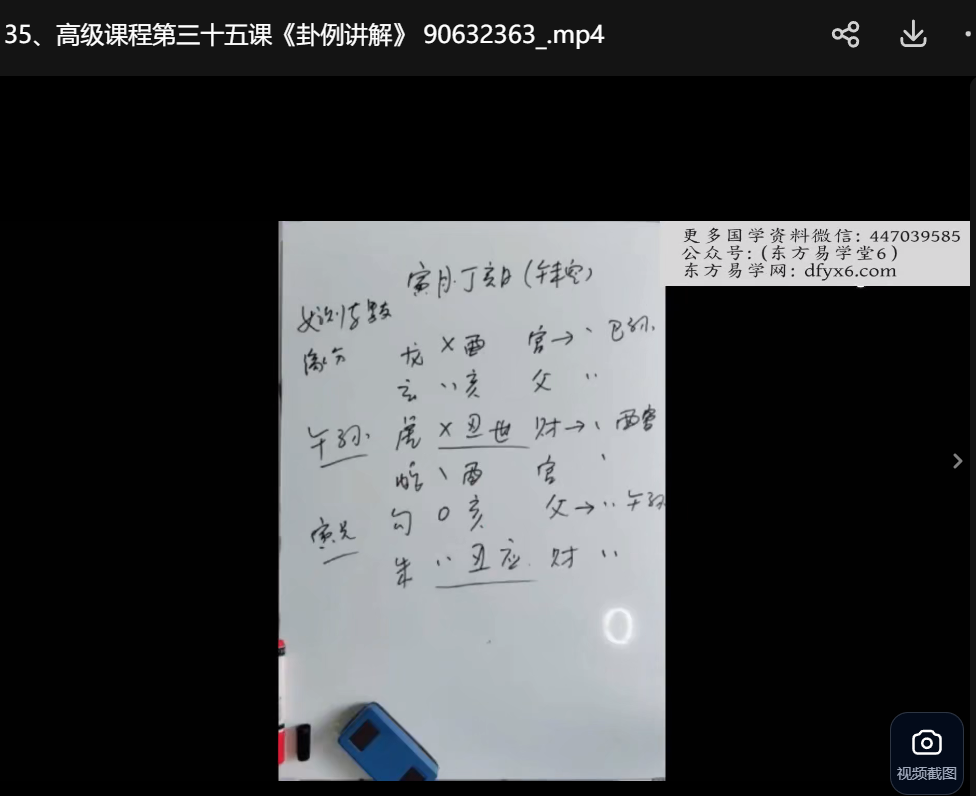 35、高级课程第三十五课《卦例讲解》 90632363_.mp4
更多国学资料微信：447039585
公众号：（东方易学堂6）
东方易学网：dfyx6.com
寅月.丁亥日（午未空）
女测
龙 × 酉 官→ 、 巳孙.
玄 、、亥 父 、、
午孙. 虎 × 丑世 财→ 、 酉官
、 酉 官 、
寅兄 勾 O 亥 父→、、 午孙
朱 、、 丑应. 财 、、
视频截图